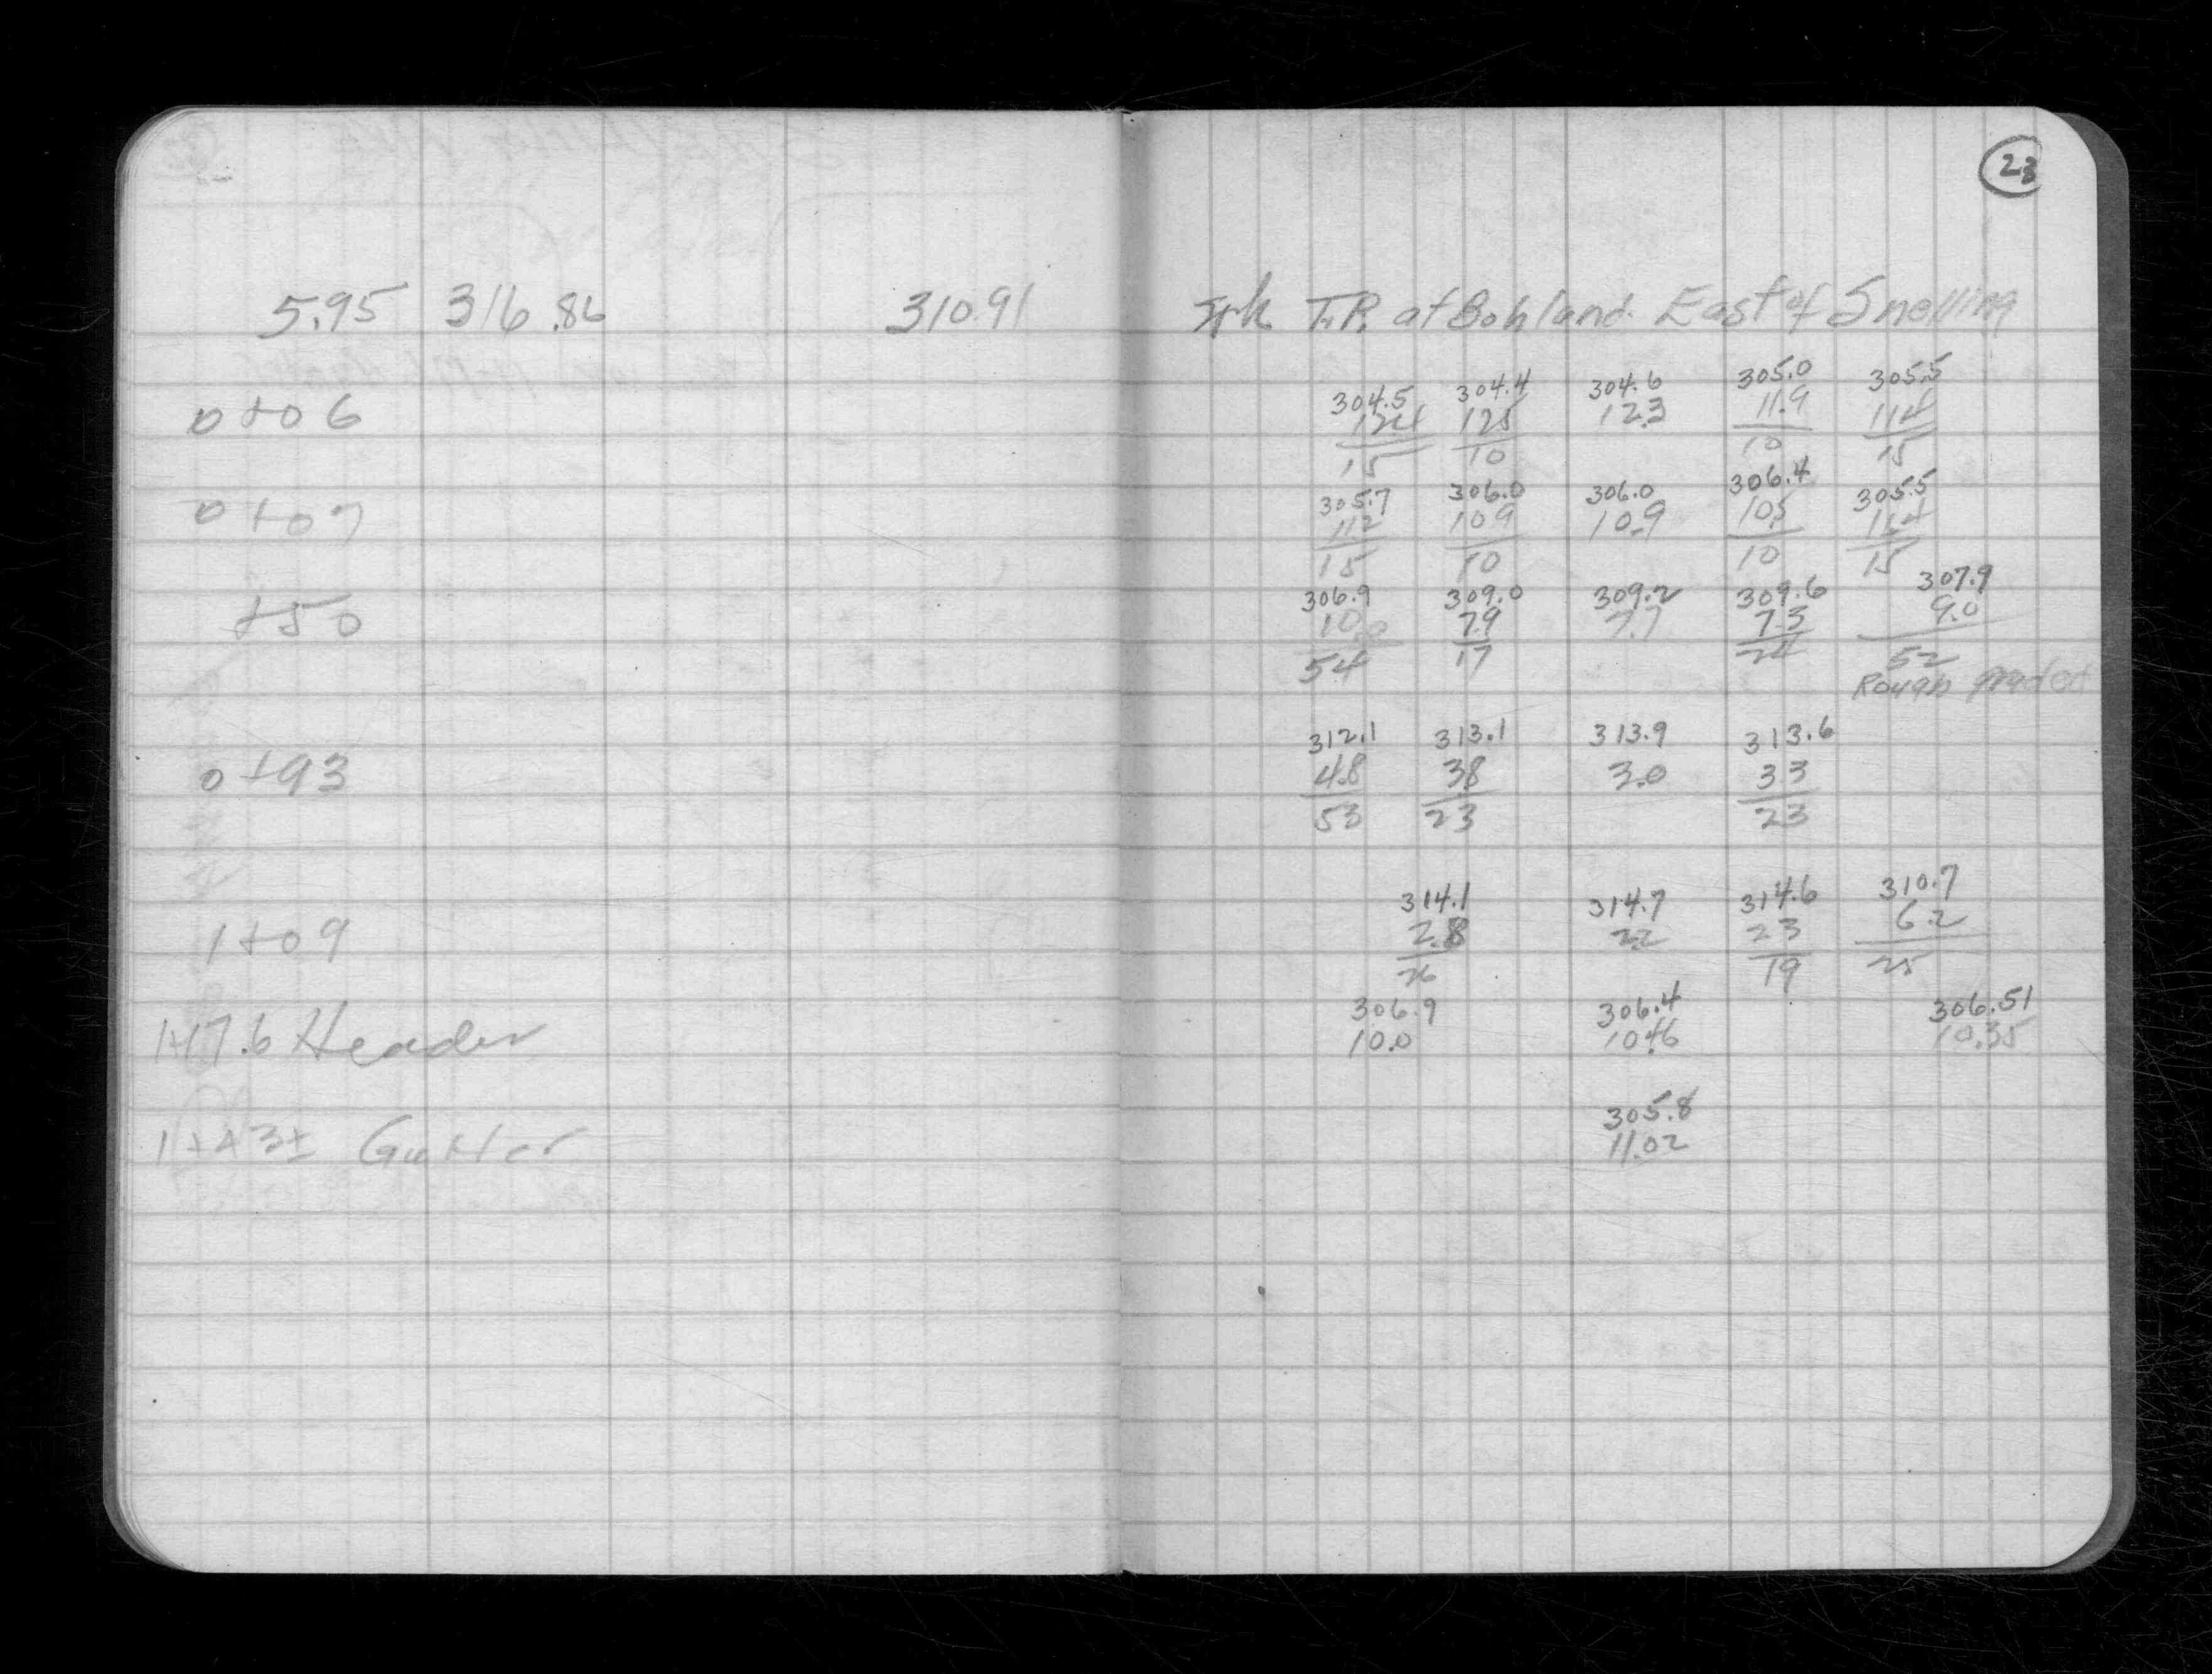 23
5.95 316.86 310.91 Spk T.P. at Bohland. East of Snelling
304.5 304.4 304.6 305.0 305.5
0+06 12.4 12.5 12.3 11.9 11.4
15 10 10 15
305.7 306.0 306.0 306.4 305.5
0+07 11.2 10.9 10.9 10.5 11.4
15 10 10 15
306.9 309.0 309.2 309.6 307.9
+50 10.0 7.9 7.7 7.3 9.0
54 17 24 52
Rough graded
312.1 313.1 313.9 313.6
0+93 4.8 3.8 3.0 3.3
53 23 23
314.1 314.7 314.6 310.7
1+09 2.8 2.2 2.3 6.2
26 19 25
306.9 306.4 306.51
1+17.6 Header 10.0 10.46 10.35
305.8
1+43± Gutter 11.02